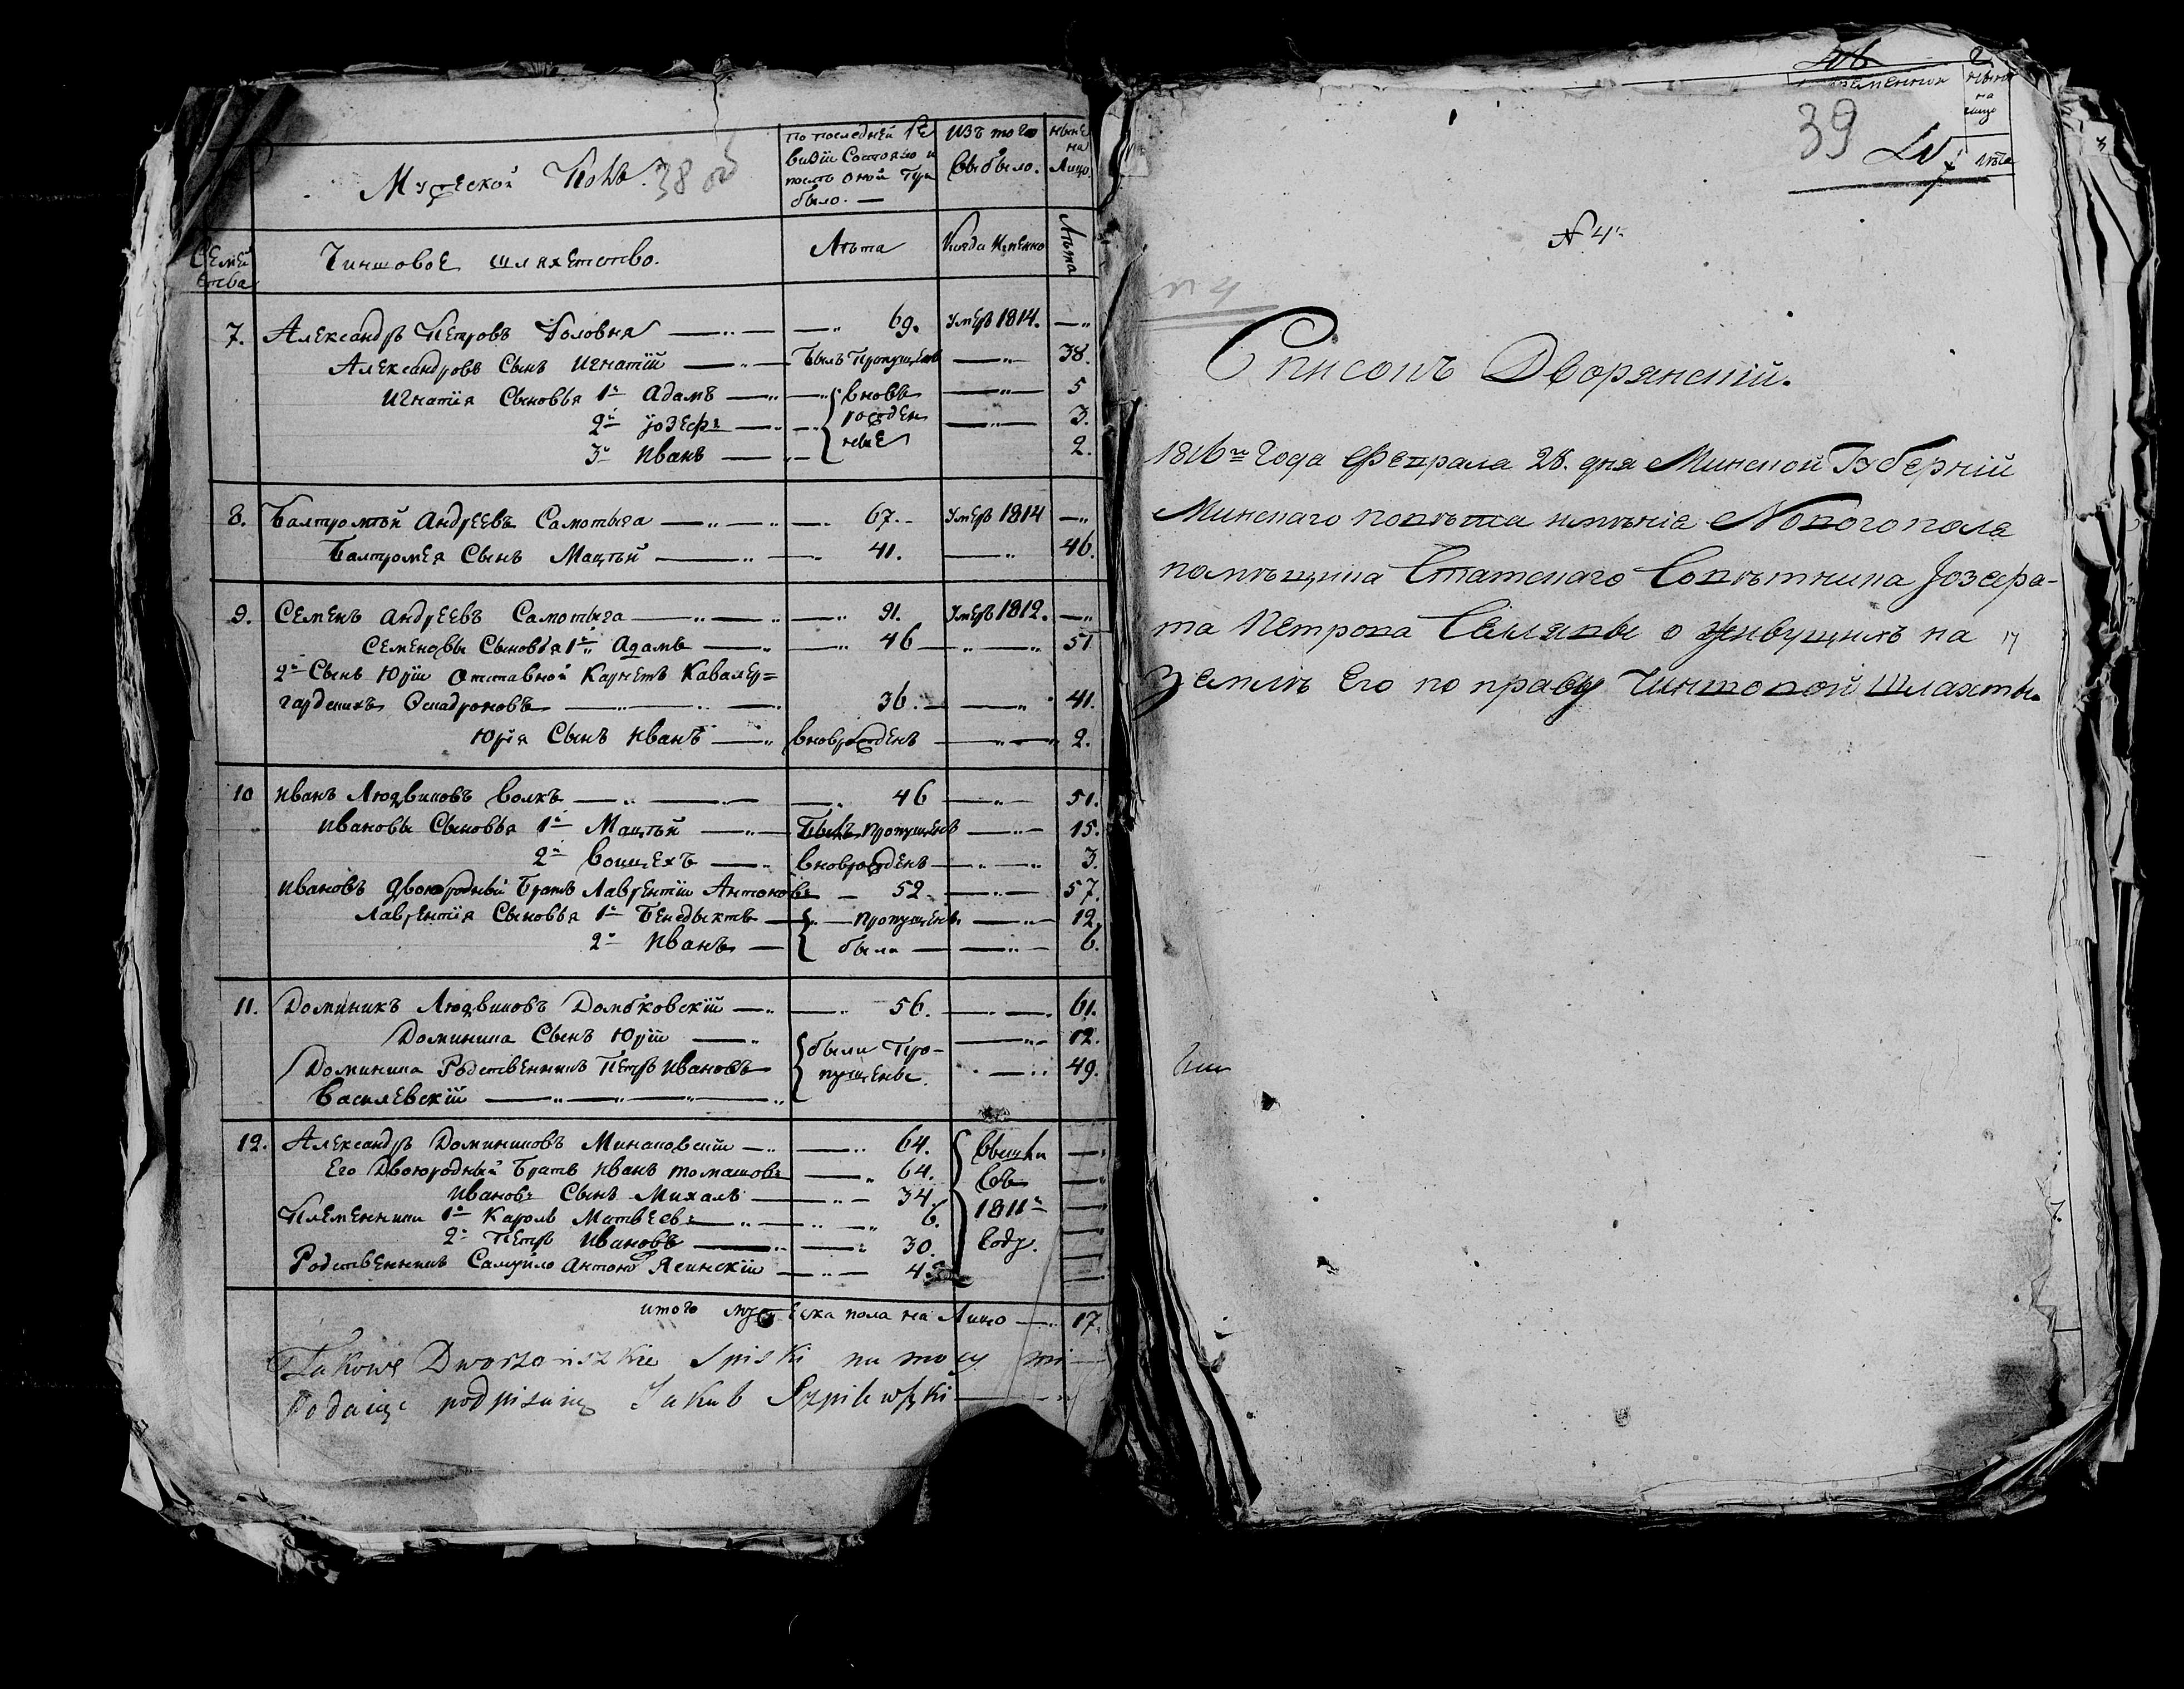 Мужеской Полъ.
38 об
По последней Ре
визіи Состояло и
послѣ оной При
было. —
Изъ того
Выбыло.
Нынѣ
на
Лицо.
Семей
ства
Чиншовое шляхетство.
Лѣта
Когда Именно
Лѣта
7. Александръ Петровъ Головня — 69. Умеръ 1814. —
Александровъ Сынъ Игнатій — Былъ Пропущенъ — 38.
Игнатія Сыновья 1й Адамъ — вновь — 5
2й Іозефъ — рожден — 3.
3й Иванъ — ные 2.
8. Балтромѣй Андреевъ Самотыга — 67. Умеръ 1814 —
Балтромея Сынъ Мацѣй — 41. — 46.
9. Семенъ Андреевъ Самотыга — 91. Умеръ 1812. —
Семеновы Сыновья 1й Адамъ — 46 — 51
2й Сынъ Юрій Отставной Карнетъ Кавалер=
гардскихъ Эскадроновъ — 36. — 41.
Юрія Сынъ Иванъ — вноврожденъ — 2.
10 Иванъ Людвиковъ Волкъ — 46 — 51.
Ивановы Сыновья 1й Мацѣй — Былъ пропущенъ — 15.
2й Войцехъ — вноврожденъ — 3.
Ивановъ Двоюродный Братъ Лаврентій Антоновъ — 52. — 57.
Лаврентія Сыновья 1й Бенедыктъ — пропущены — 12.
2й Иванъ — были — 6.
11. Доминикъ Людвиковъ Домбковскій — 56. — 61.
Доминика Сынъ Юрій — были Про- — 12.
Доминика Родственникъ Петръ Ивановъ пущены. — 49.
Василевскій —
12. Александръ Доминиковъ Минаковскій — 64. Вышли —
Его Двоюродный Братъ Иванъ Томашовъ — 64. въ —
Ивановъ Сынъ Михалъ — 34. —
Племенники 1й Кароль Матвеевъ — 6. 1811м —
2й Петръ Ивановъ — 30. Году. —
Родственникъ Самуйло Антоновъ Ясинскій — 4 —
итого мужеска пола на Лицо — 17.
Takowe Dworzańskie Spiski na mocy mi
Podaię podpisuię Jakub Szpilewski —
39
N 4й
n 4
Списокъ Дворянскій.
1816го Года Февраля 28. дня Минской Губерніи
Минскаго повѣта имѣнія Новогополя
помѣщика Статскаго Совѣтника Іозефа-
та Петрова Селявы о живущихъ на
землѣ Его по праву Чиншовой Шляхты.